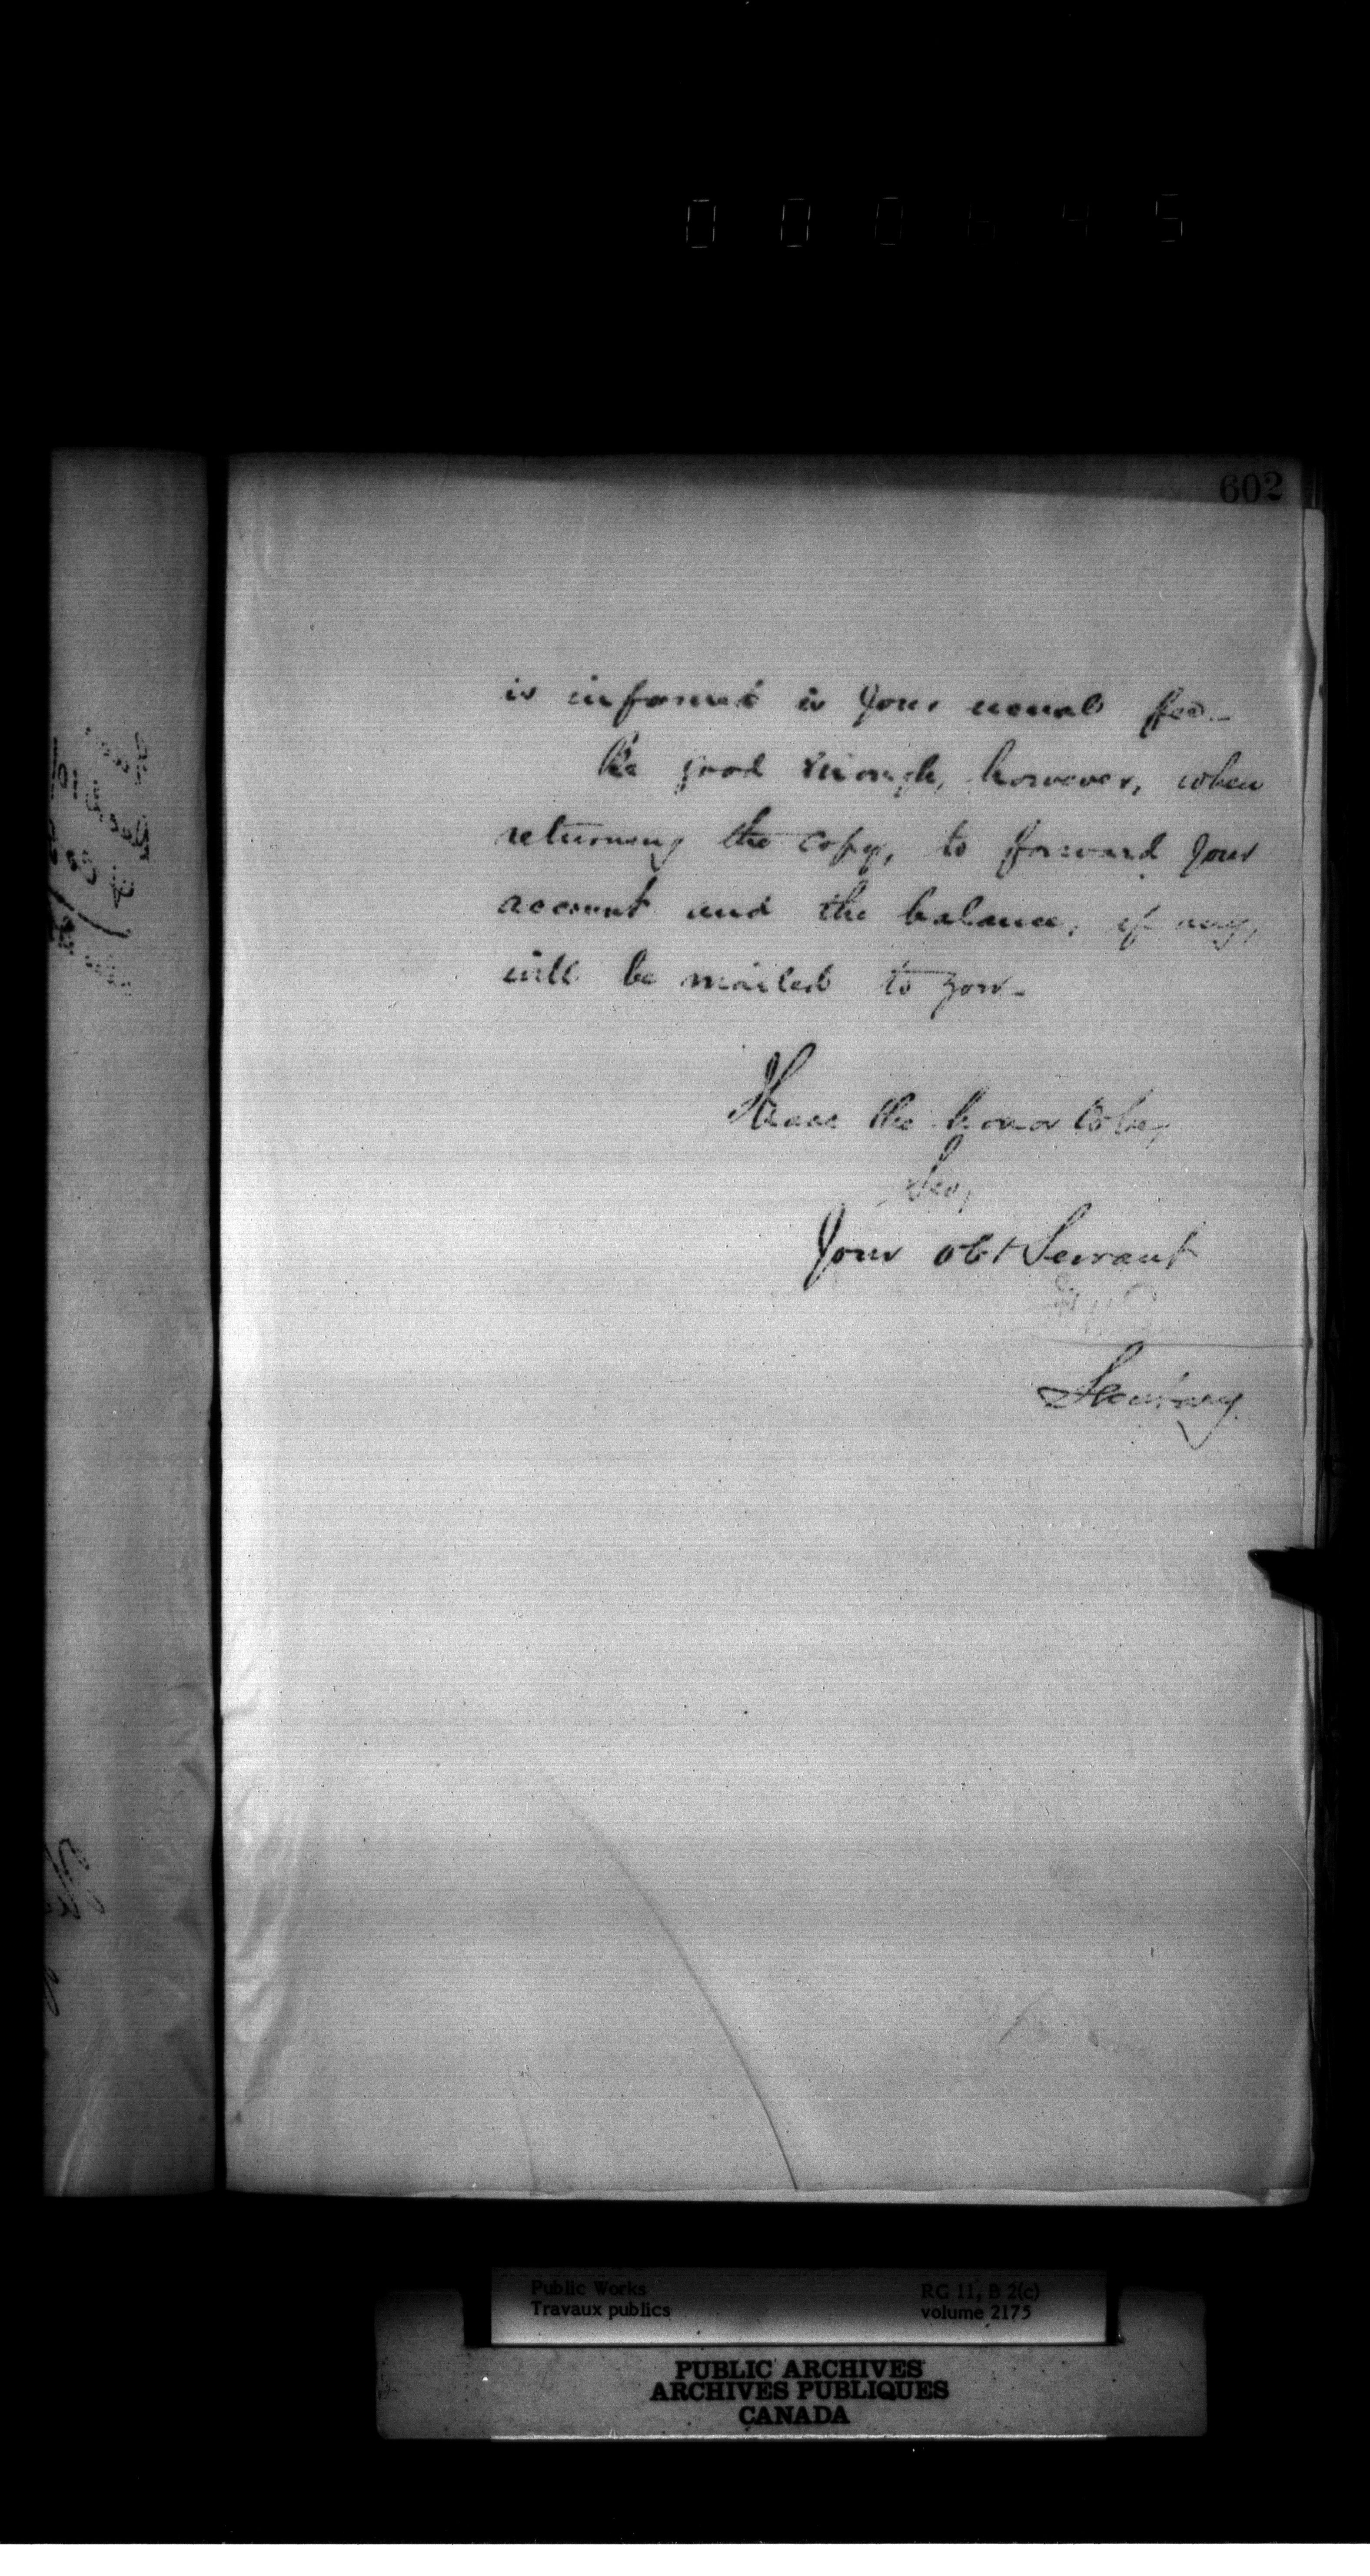 000645
602
is informed is your usual fee -
Be good enough, however, when
returning the copy, to forward your
account and the balance, if any,
will be mailed to you -
Have the honor to be,
Sir,
Your obt Servant
Secretary
Public Works
Travaux publics
RG 11, B 2(c)
volume 2175
PUBLIC ARCHIVES
ARCHIVES PUBLIQUES
CANADA